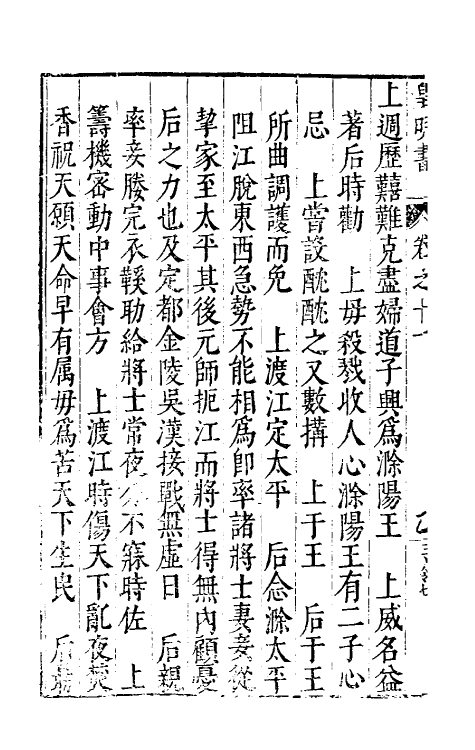 皇明書 卷之十一
上週歷囏難克盡婦道子興爲滁陽王 上威名益
著后時勸 上毋殺戮收人心滁陽王有二子心
忌 上嘗設酖酖之又數搆 上于王 后于王
所曲調護而免 上渡江定太平 后念滁太平
阻江脫東西急勢不能相爲卽率諸將士妻妾從
挈家至太平其後元師扼江而將士得無內顧憂
后之力也及定都金陵吳漢接戰無虛日 后親
率妾媵完衣鞵助給將士常夜分不寐時佐 上
籌機密動中事會方 上渡江時傷天下亂夜焚
香祝天願天命早有属毋爲苦天下生民 后